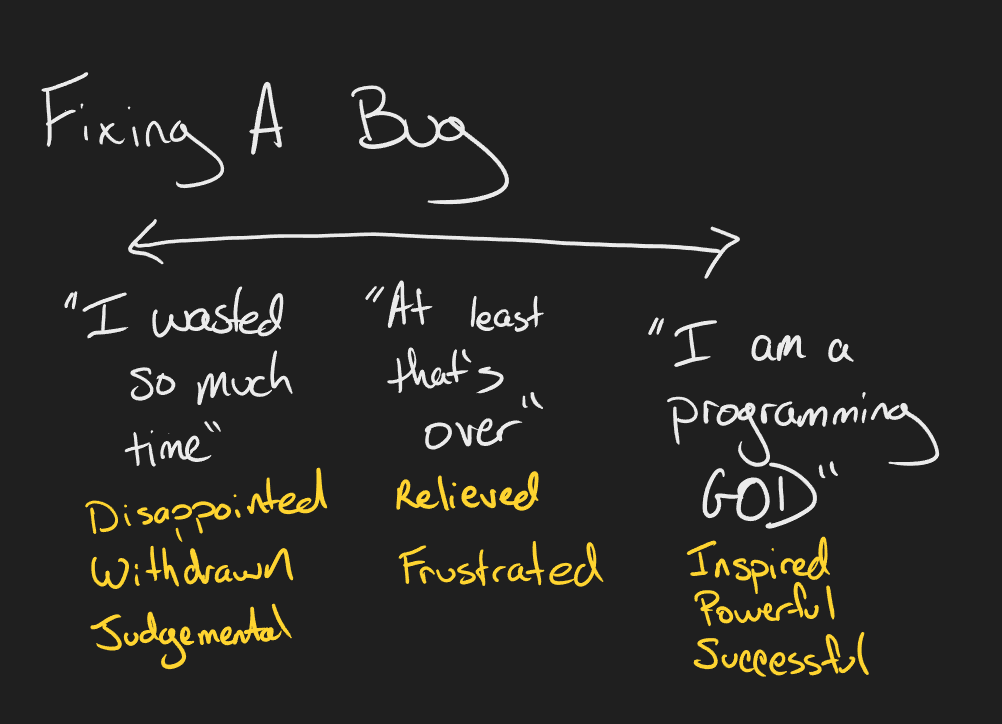 Fixing A Bug
"I wasted
so much
time"
Disappointed
Withdrawn
Judgemental
"At least
that's
over"
Relieved
Frustrated
"I am a
programming
GOD"
Inspired
Powerful
Successful